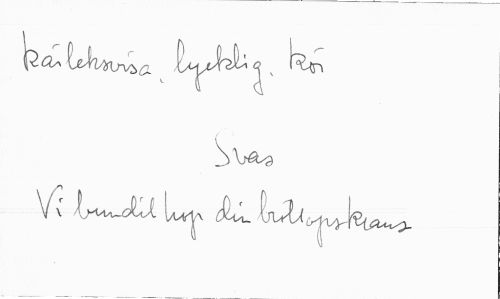 Kärleksvisa, lycklig. Kör
Svas
Vi bundit hop din bröllopskrans